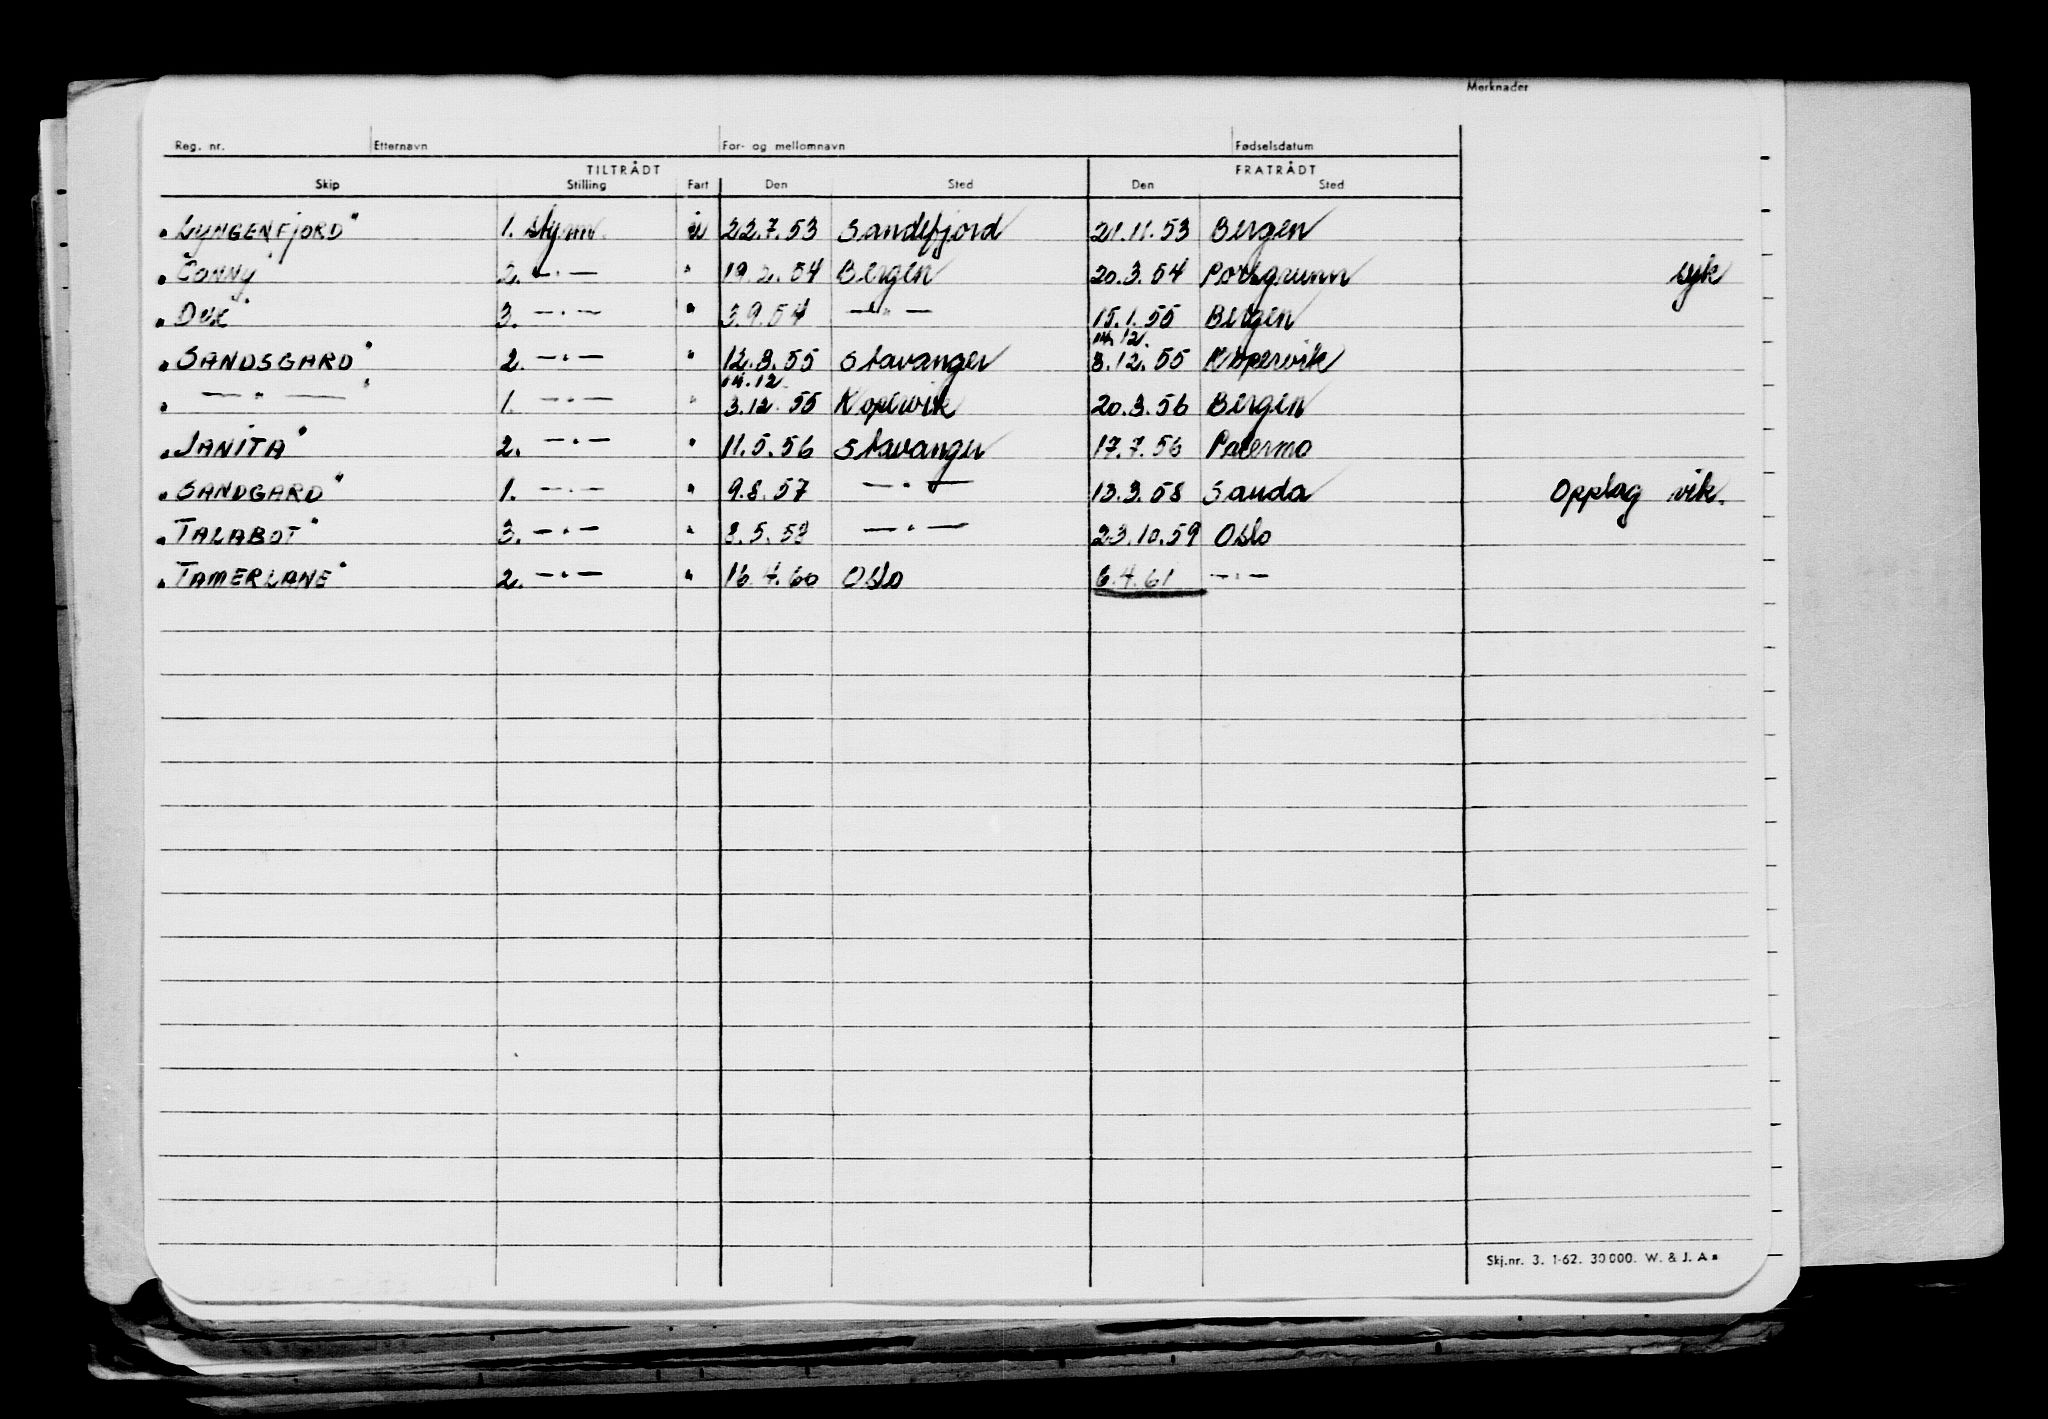 Merknader
Reg. nr. Etternavn For- og mellomnavn Fødselsdatum
TILTRÅDT FRATRÅDT
Skip Stilling Fart Den Sted Den Sted
"LYNGENFJORD" 1. styrm. u 22.7.53 Sandefjord 21.11.53 Bergen
"Conny" 2. —"— " 19.2.54 Bergen 20.3.54 Porsgrunn syk
"Dux" 3. —"— " 3.9.54 —"— 15.1.55 Bergen
14.12.
"SANDSGARD" 2. —"— " 12.3.55 Stavanger 3.12.55 Kopervik
14.12.
" —"— " 1. —"— " 3.12.55 Kopervik 20.3.56 Bergen
"JANITA" 2. —"— " 11.5.56 Stavanger 17.7.56 Palermo
"SANDGARD" 1. —"— " 9.8.57 —"— 13.3.58 Sauda Opplag vik.
"TALABOT" 3. —"— " 8.5.59 —"— 23.10.59 Oslo
"TAMERLANE" 2. —"— " 16.4.60 Oslo 6.4.61 —"—
Skj.nr. 3. 1-62. 30 000. W. & J. A